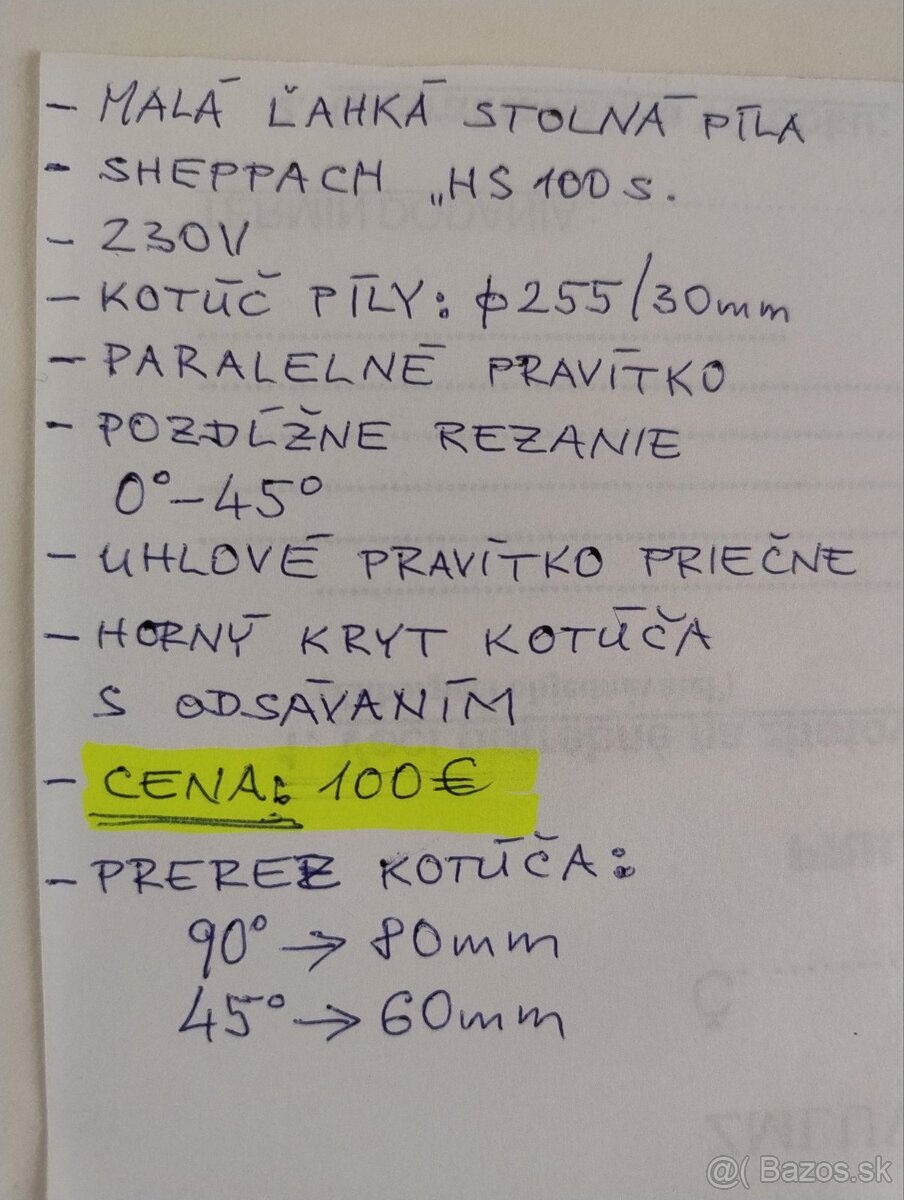 - MALÁ ĽAHKÁ STOLNÁ PÍLA
- SHEPPACH „HS 100 s.
- 230V
- KOTÚČ PÍLY: ϕ255/30mm
- PARALELNÉ PRAVÍTKO
- POZDĹŽNE REZANIE
0°-45°
- UHLOVÉ PRAVÍTKO PRIEČNE
- HORNÝ KRYT KOTÚČA
S ODSÁVANÍM
- CENA: 100€
- PREREZ KOTÚČA:
90° → 80mm
45° → 60mm
TERMÍN DODANIA
Č.
@( Bazos.sk